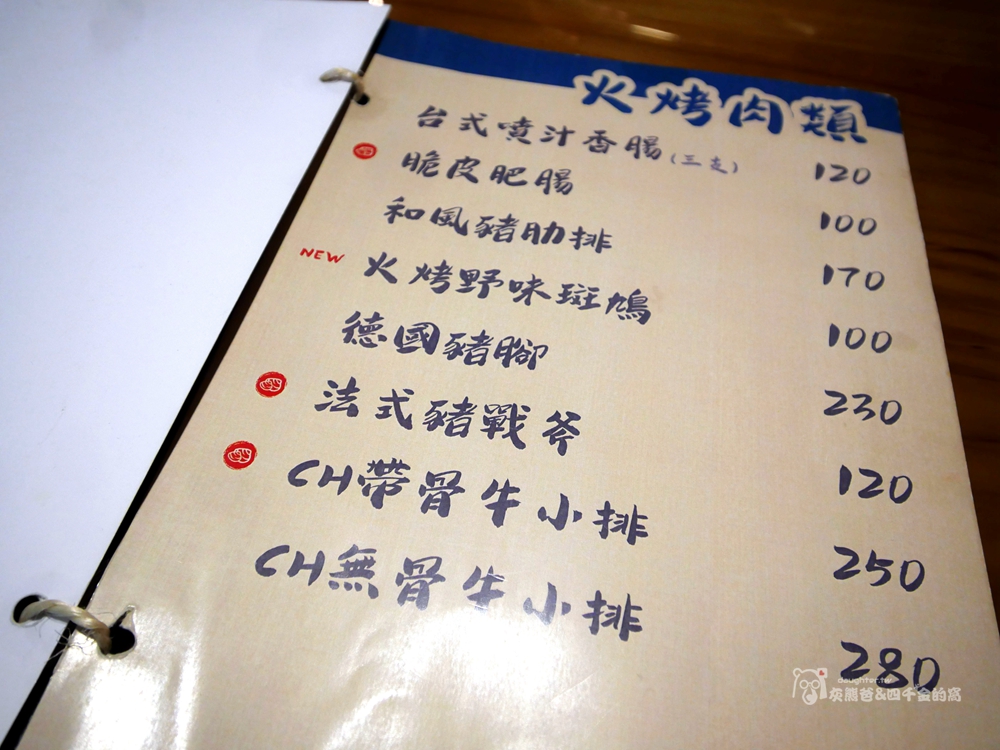 火烤肉類
台式噴汁香腸(三支) 120
脆皮肥腸 100
和風豬肋排 170
NEW 火烤野味斑鳩 100
德國豬腳 230
法式豬戰斧 120
CH帶骨牛小排 250
CH無骨牛小排 280
daughter.tw
灰熊爸&四千金的窩